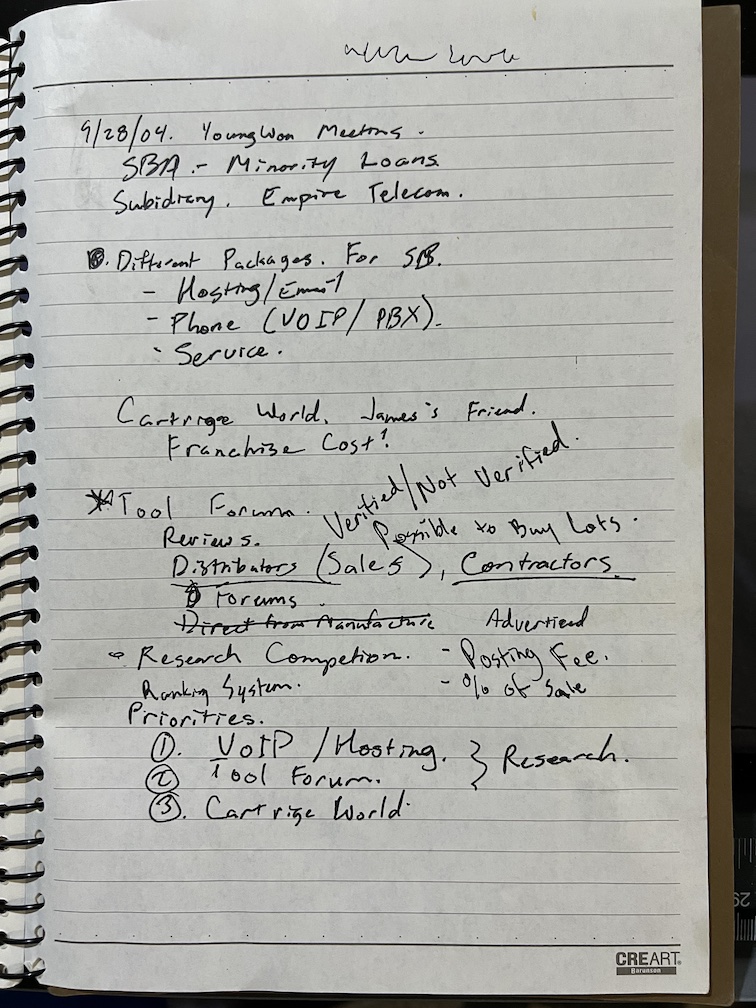 9/28/04. YoungWon Meeting.
SBA - Minority Loans
Subidiary. Empire Telecom.
Different Packages. For SB.
- Hosting/Email
- Phone (VOIP/PBX).
- Service.
Cartrige World, James's Friend.
Franchise Cost?
Tool Forum.
Verified/Not Verified.
Reviews.
Possible to Buy Lots.
Distributors (Sales), Contractors.
Forums.
Direct from Manufacture
Research Competion.
Ranking System.
- Posting Fee.
- % of Sale
Priorities.
①. VoIP /Hosting. } Research.
② Tool Forum.
③. Cartrige World.
CREART
Baronson
29